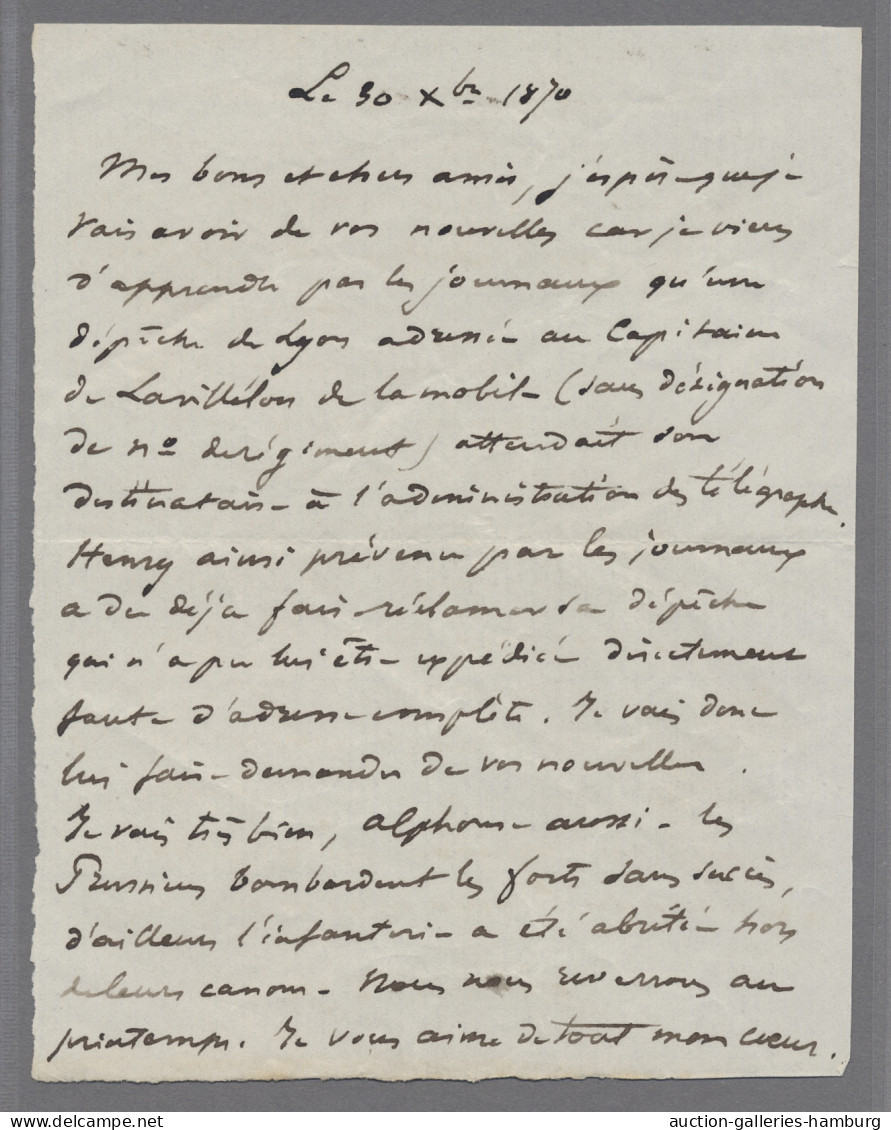 Le 30 Xbre 1870
Mes bons et chers amis, j'espère que je
vais avoir de vos nouvelles car je viens
d'apprendre par les journaux qu'une
dépêche de Lyon adressée au Capitaine
de Lavillélon de la mobile (sans désignation
de nº de régiment) attendait son
destinataire à l'administration des télégraphes.
Henry ainsi prévenu par les journaux
a du déja faire réclamer sa dépêche
qui n'a pu lui être expédiée directement
faute d'adresse complète. Je vais donc
lui faire demander de vos nouvelles.
Je vais très bien, Alphonse aussi - les
Prussiens bombardent les forts sans succès,
d'ailleurs l'infanterie a été abritée hors
de leurs canons - Nous nous reverrons au
printemps. Je vous aime de tout mon coeur.
delcampe.net
auction-galleries-hamburg